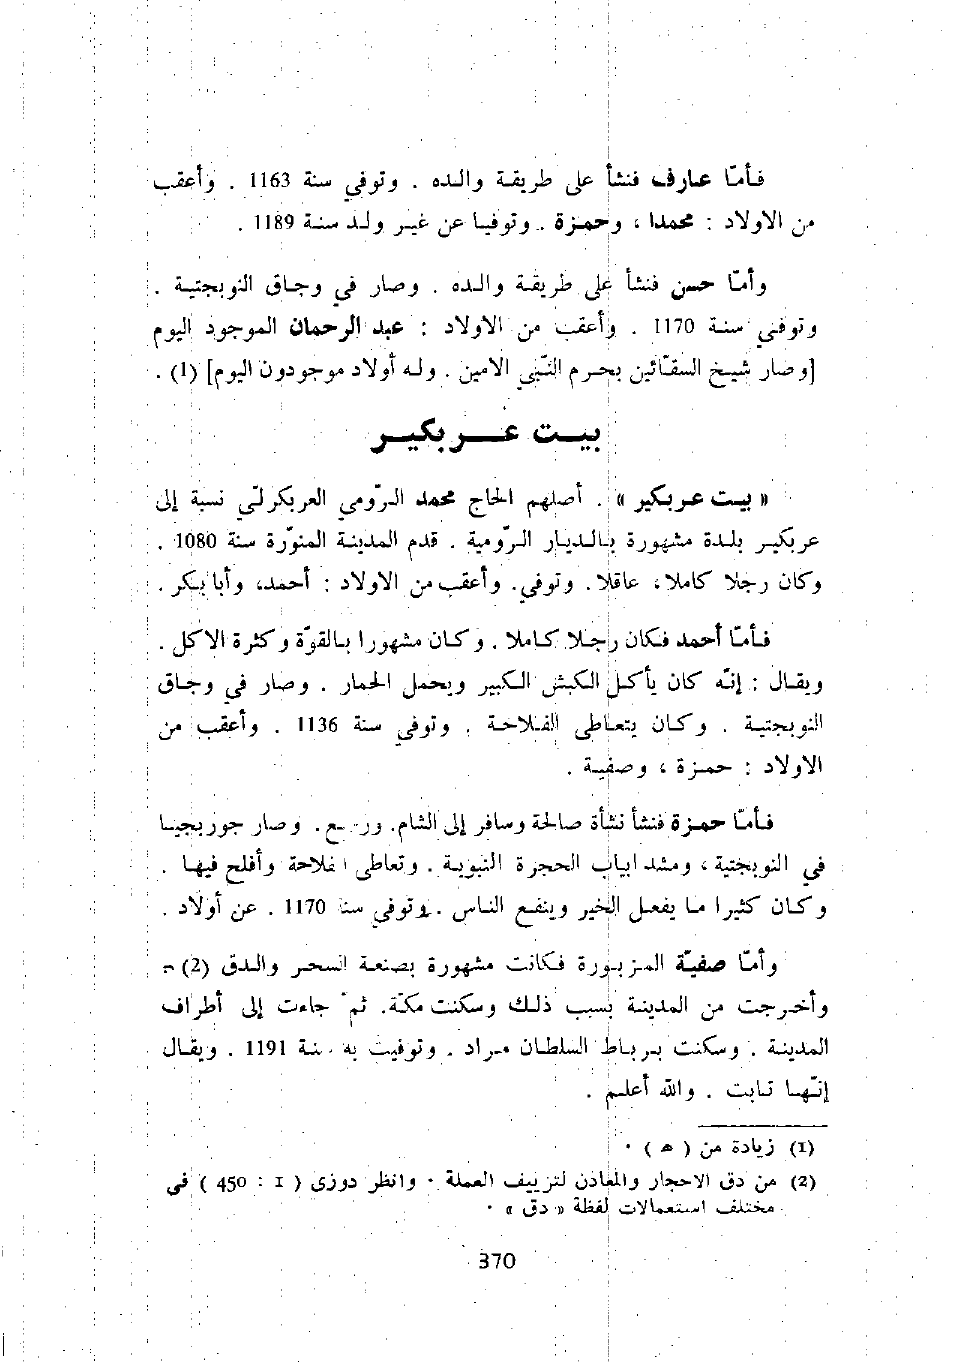 فأمّا عارف فنشأ على طريقة والده . وتوفي سنة 1163 . وأعقب
من الاولاد : محمدا ، وحمزة . وتوفيا عن غير ولد سنة 1189 .
وأمّا حسن فنشأ على طريقة والده . وصار في وجاق النوبجتية .
وتوفي سنة 1170 . وأعقب من الاولاد : عبد الرحمان الموجود اليوم
[وصار شيخ السقّائين بحرم النّبي الامين . وله أولاد موجودون اليوم] (1) .
بيت عربكير
« بيت عربكير » . أصلهم الحاج محمد الرّومي العربكرلّي نسبة إلى
عربكير بلدة مشهورة بالديار الرّومية . قدم المدينة المنوّرة سنة 1080 .
وكان رجلا كاملا، عاقلا . وتوفي. وأعقب من الاولاد : أحمد، وأبا بكر .
فأمّا أحمد فكان رجلا كاملا . وكان مشهورا بالقوّة وكثرة الاكل .
ويقال : إنّه كان يأكل الكبش الكبير ويحمل الحمار . وصار في وجاق
النوبجتية . وكان يتعاطى الفلاحة . وتوفي سنة 1136 . وأعقب من
الاولاد : حمزة ، وصفية .
فأمّا حمزة فنشأ نشأة صالحة وسافر إلى الشام. ورجع. وصار جوربجيا
في النوبجتية ، ومشد ابياب الحجرة النبوية . وتعاطى الفلاحة وأفلح فيها .
وكان كثيرا ما يفعل الخير وينفع الناس . وتوفي سنة 1170 . عن أولاد .
وأمّا صفيّة المزبورة فكانت مشهورة بصنعة السحر والدق (2)
وأخرجت من المدينة بسبب ذلك وسكنت مكّة. ثم جاءت إلى أطراف
المدينة . وسكنت برباط السلطان مراد . وتوفيت به سنة 1191 . ويقال
إنّها تابت . والله أعلم .
(1) زيادة من ( ه ) .
(2) من دق الاحجار والمعادن لتزييف العملة . وانظر دوزى ( 1 : 450 ) في
مختلف استعمالات لفظة « دق » .
370